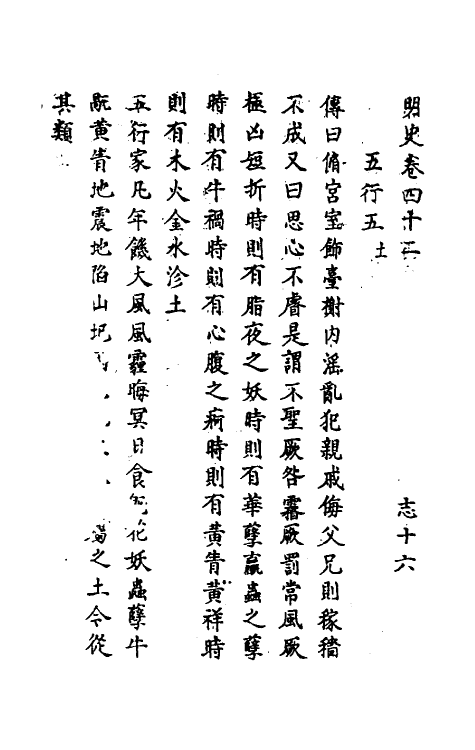 明史卷四十二 志十六
五行五 土
傳曰脩宮室飾臺榭内滛亂犯親戚侮父兄則稼穡
不成又曰思心不睿是謂不聖厥咎霿厥罰常風厥
極凶短折時則有脂夜之妖時則有華孽蠃蟲之孽
時則有牛禍時則有心腹之痾時則有黄眚黄祥時
則有木火金水沴土
五行家凡年饑大風風霾晦冥日食花妖蟲孽牛
黄眚地震地陷山圯屬之土今從
其類